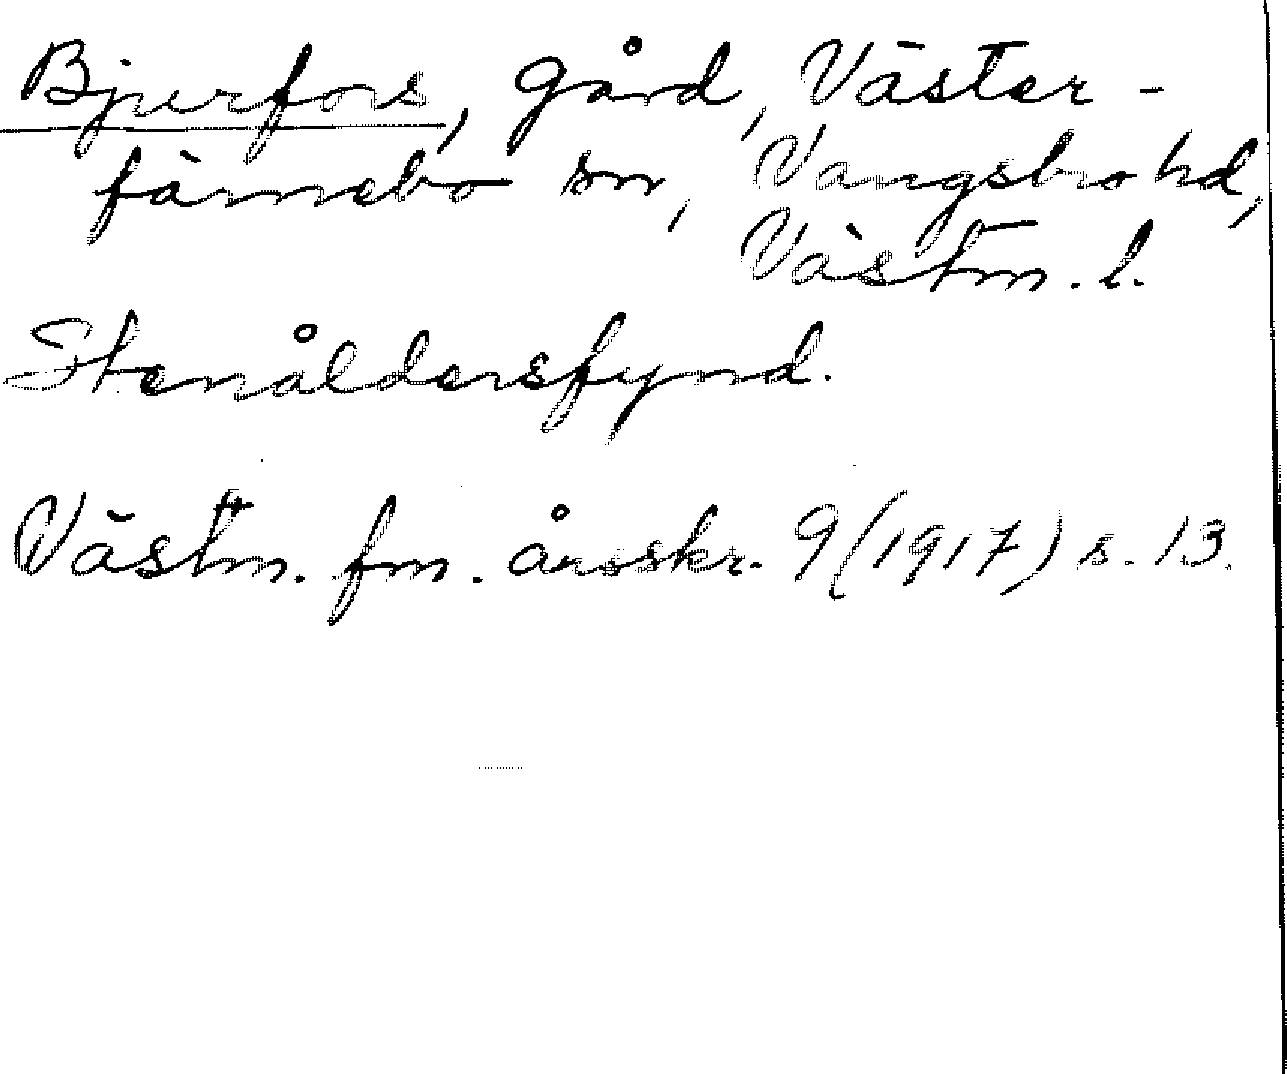 Bjurfors, gård, Väster-
färnebo sn, Vangsbro hd,
Västm. l.
Stenåldersfynd.
Västm. fm. årsskr. 9 (1917) s. 13.